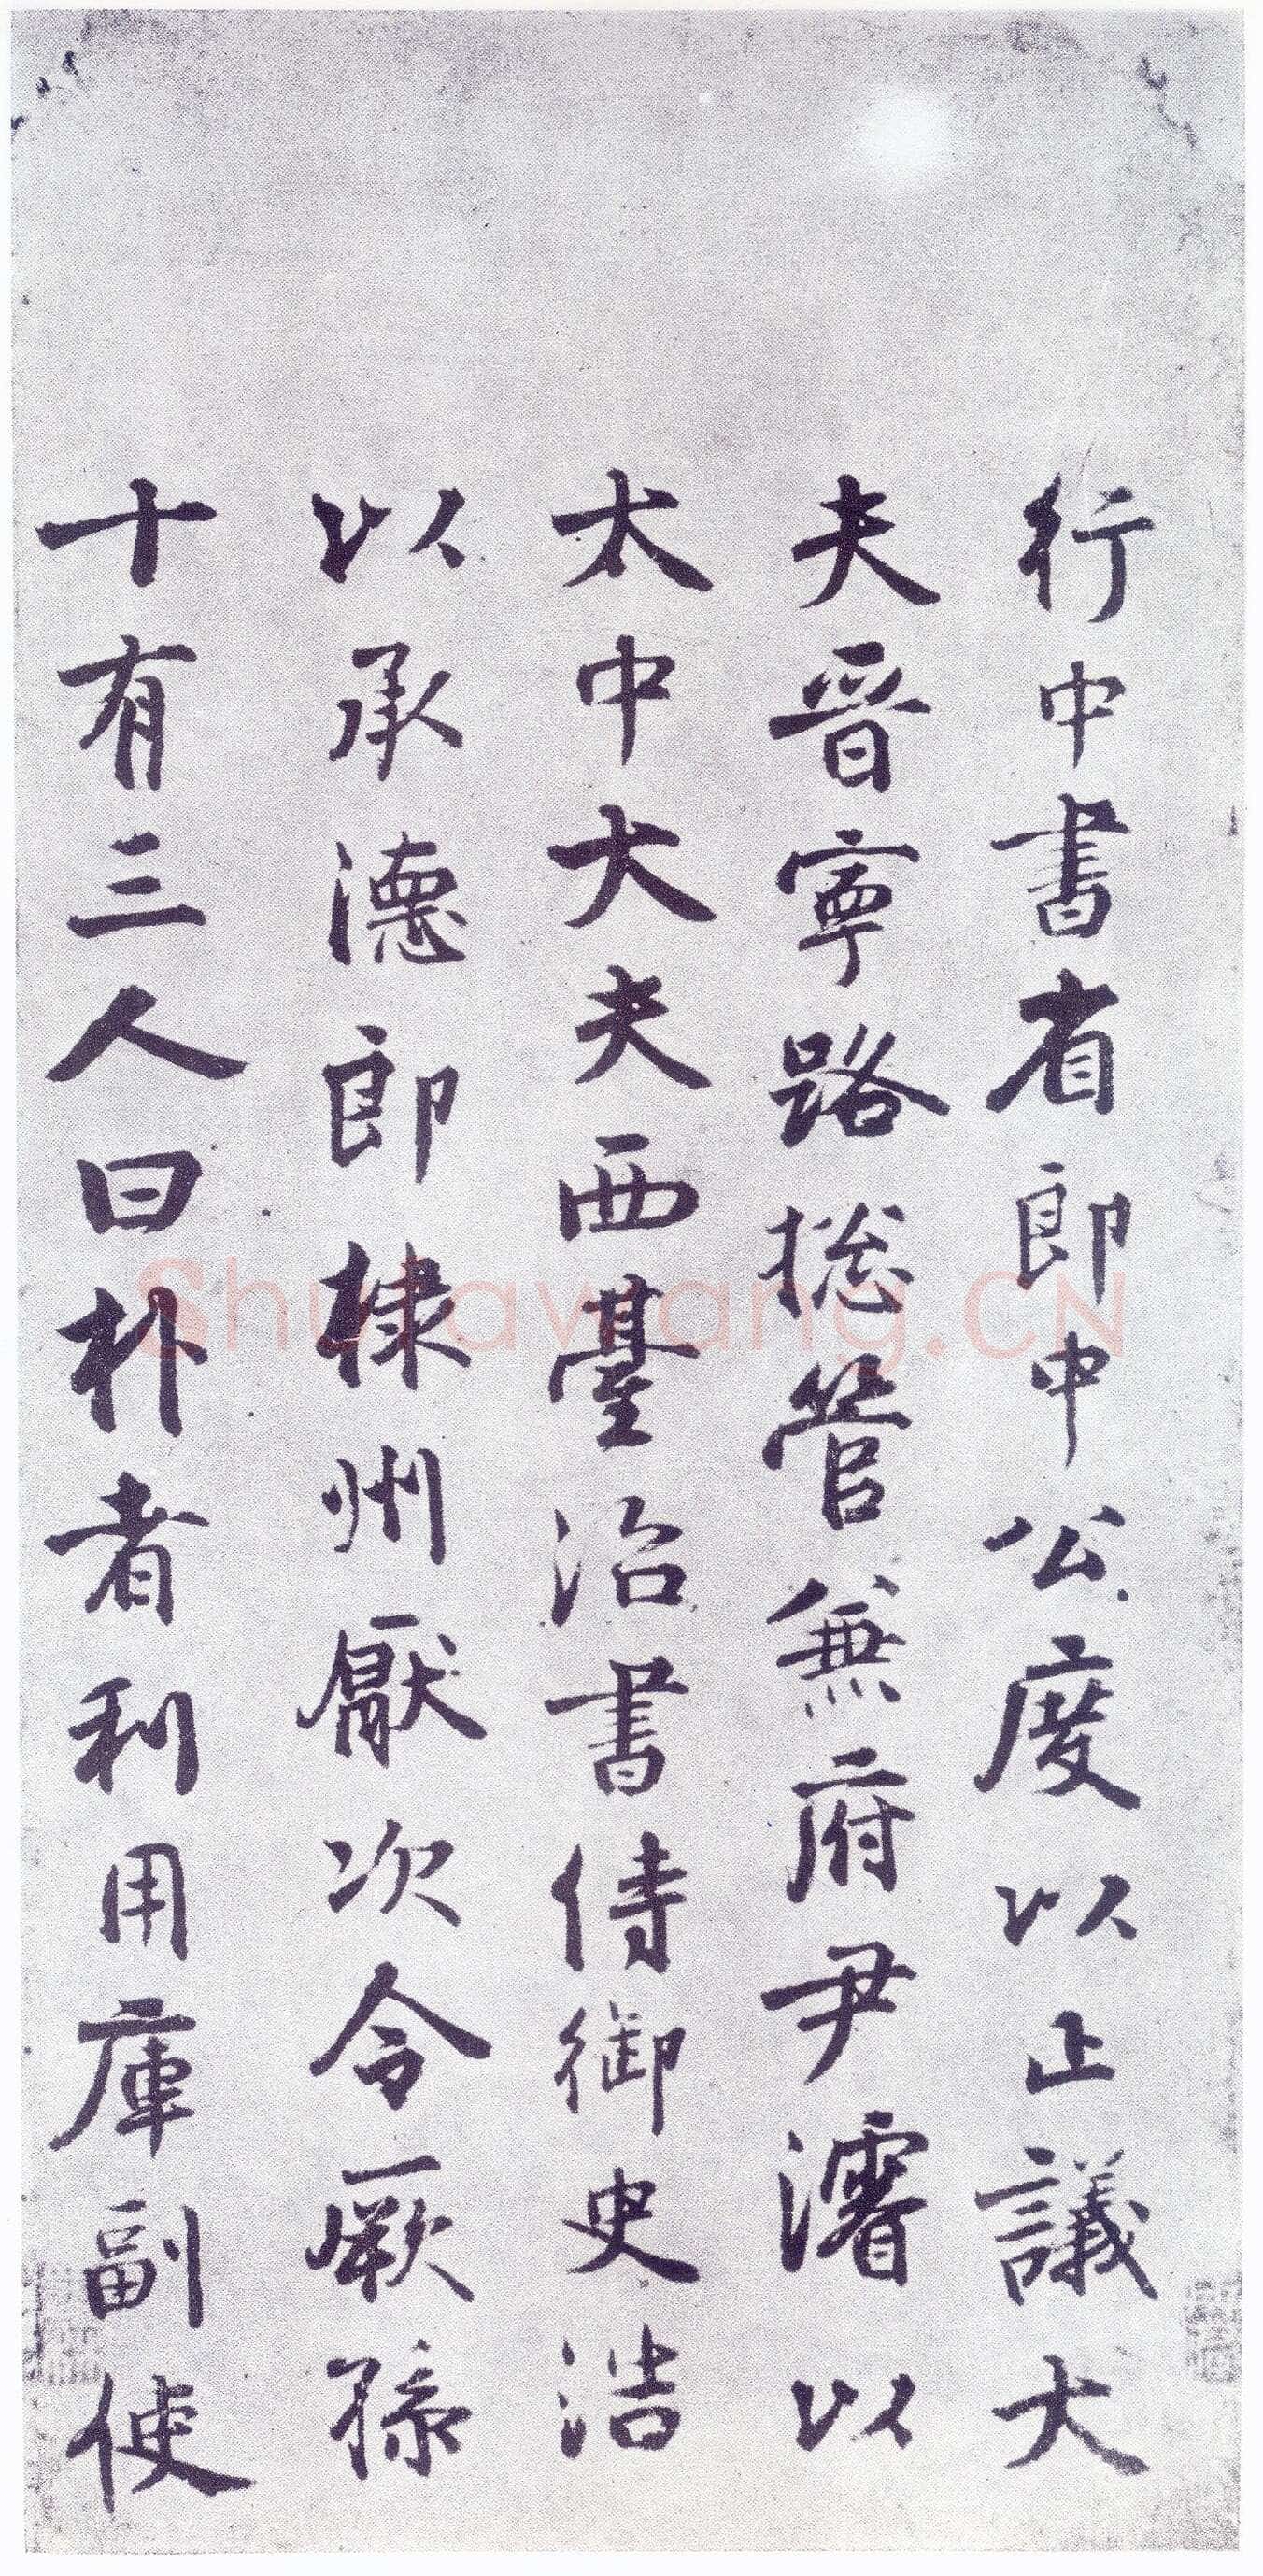 行中書省郎中公度以正議大
夫晉寧路揔管兼府尹濬以
太中大夫西臺治書侍御史浩
以承德郎棣州厭次令厥孫
十有三人曰朴者利用庫副使
Shufawang.CN